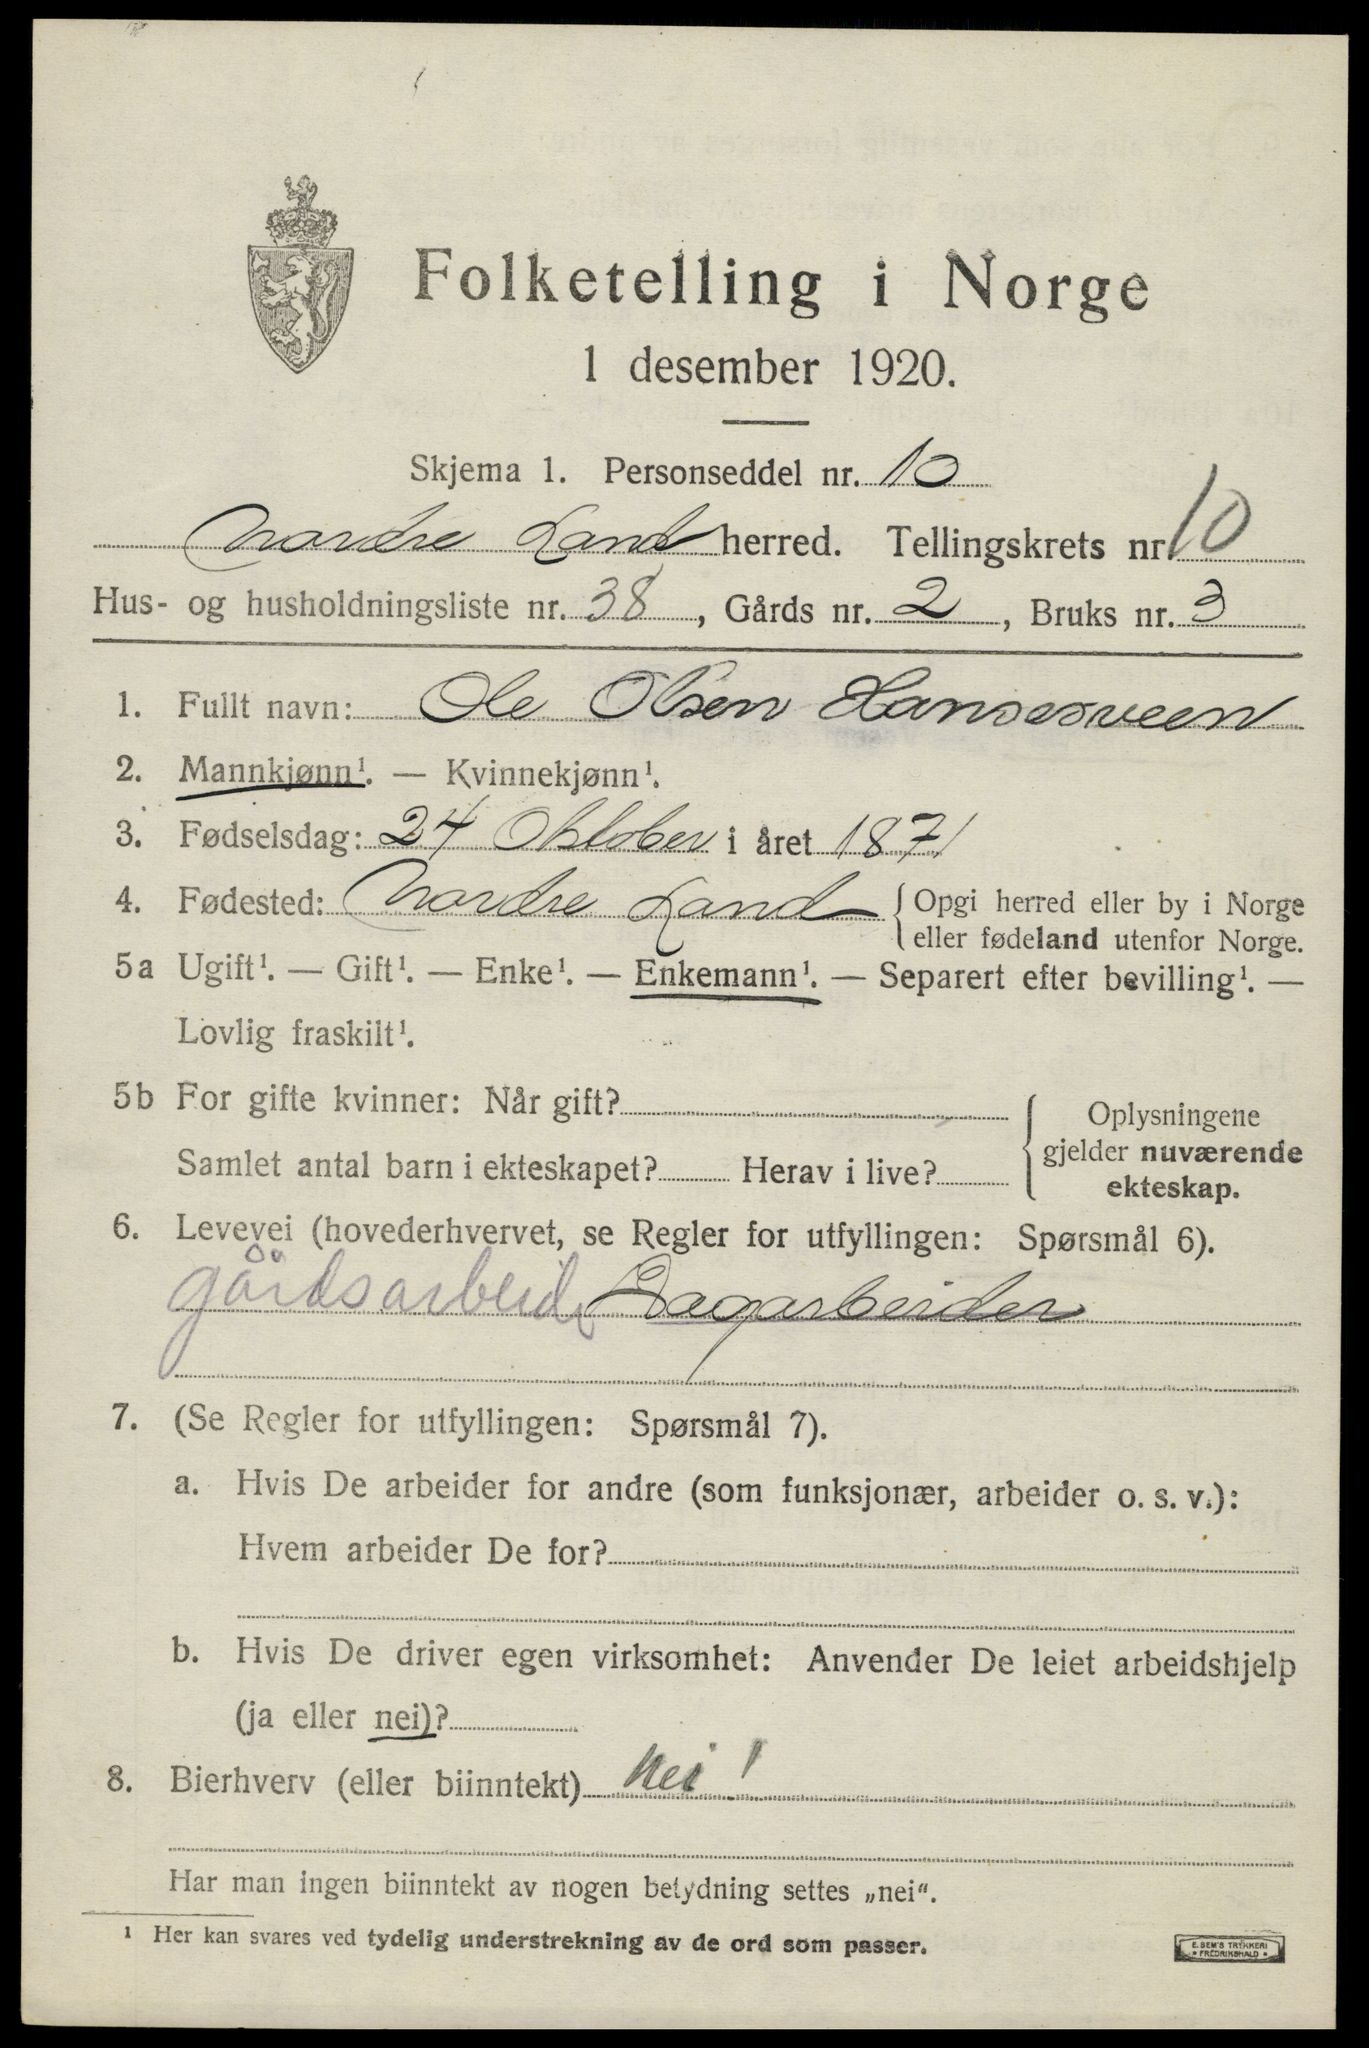 Folketelling i Norge
1 desember 1920.
Skjema 1. Personseddel nr. 10
Nordre Land herred. Tellingskrets nr 10
Hus- og husholdningsliste nr. 38, Gårds nr. 2, Bruks nr. 3
1. Fullt navn: Ole Olsen Hansesveen
2. Mannkjønn¹. — Kvinnekjønn¹.
3. Fødselsdag: 24 Oktober i året 1871
4. Fødested: Nordre Land { Opgi herred eller by i Norge
eller fødeland utenfor Norge.
5a Ugift¹. — Gift¹. — Enke¹. — Enkemann¹. — Separert efter bevilling¹. —
Lovlig fraskilt¹.
5b For gifte kvinner: Når gift?
Samlet antal barn i ekteskapet? Herav i live?
{ Oplysningene
gjelder nuværende
ekteskap.
6. Levevei (hovederhvervet, se Regler for utfyllingen: Spørsmål 6).
gårdsarbeid. Dagarbeider
7. (Se Regler for utfyllingen: Spørsmål 7).
a. Hvis De arbeider for andre (som funksjonær, arbeider o. s. v.):
Hvem arbeider De for?
b. Hvis De driver egen virksomhet: Anvender De leiet arbeidshjelp
(ja eller nei)?
8. Bierhverv (eller biinntekt) Nei!
Har man ingen biinntekt av nogen betydning settes „nei“.
¹ Her kan svares ved tydelig understrekning av de ord som passer.
E. SEM'S TRYKKERI
• FREDRIKSHALD •